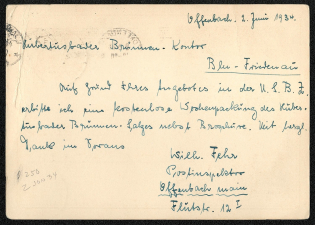 Offenbach. 2. Juni 1934.
Hubertusbader Brunnen-Kontor
Bln-Friedenau
Auf Grund Ihres Angebotes in der N.S.B.Z.
erbitte ich eine kostenlose Wochenpackung des Huber-
tusbader Brunnen-Salzes nebst Broschüre. Mit herzl.
Dank im Voraus
Wilh. Fehr
Postinspektor
Offenbach Main
Flutstr. 12 I